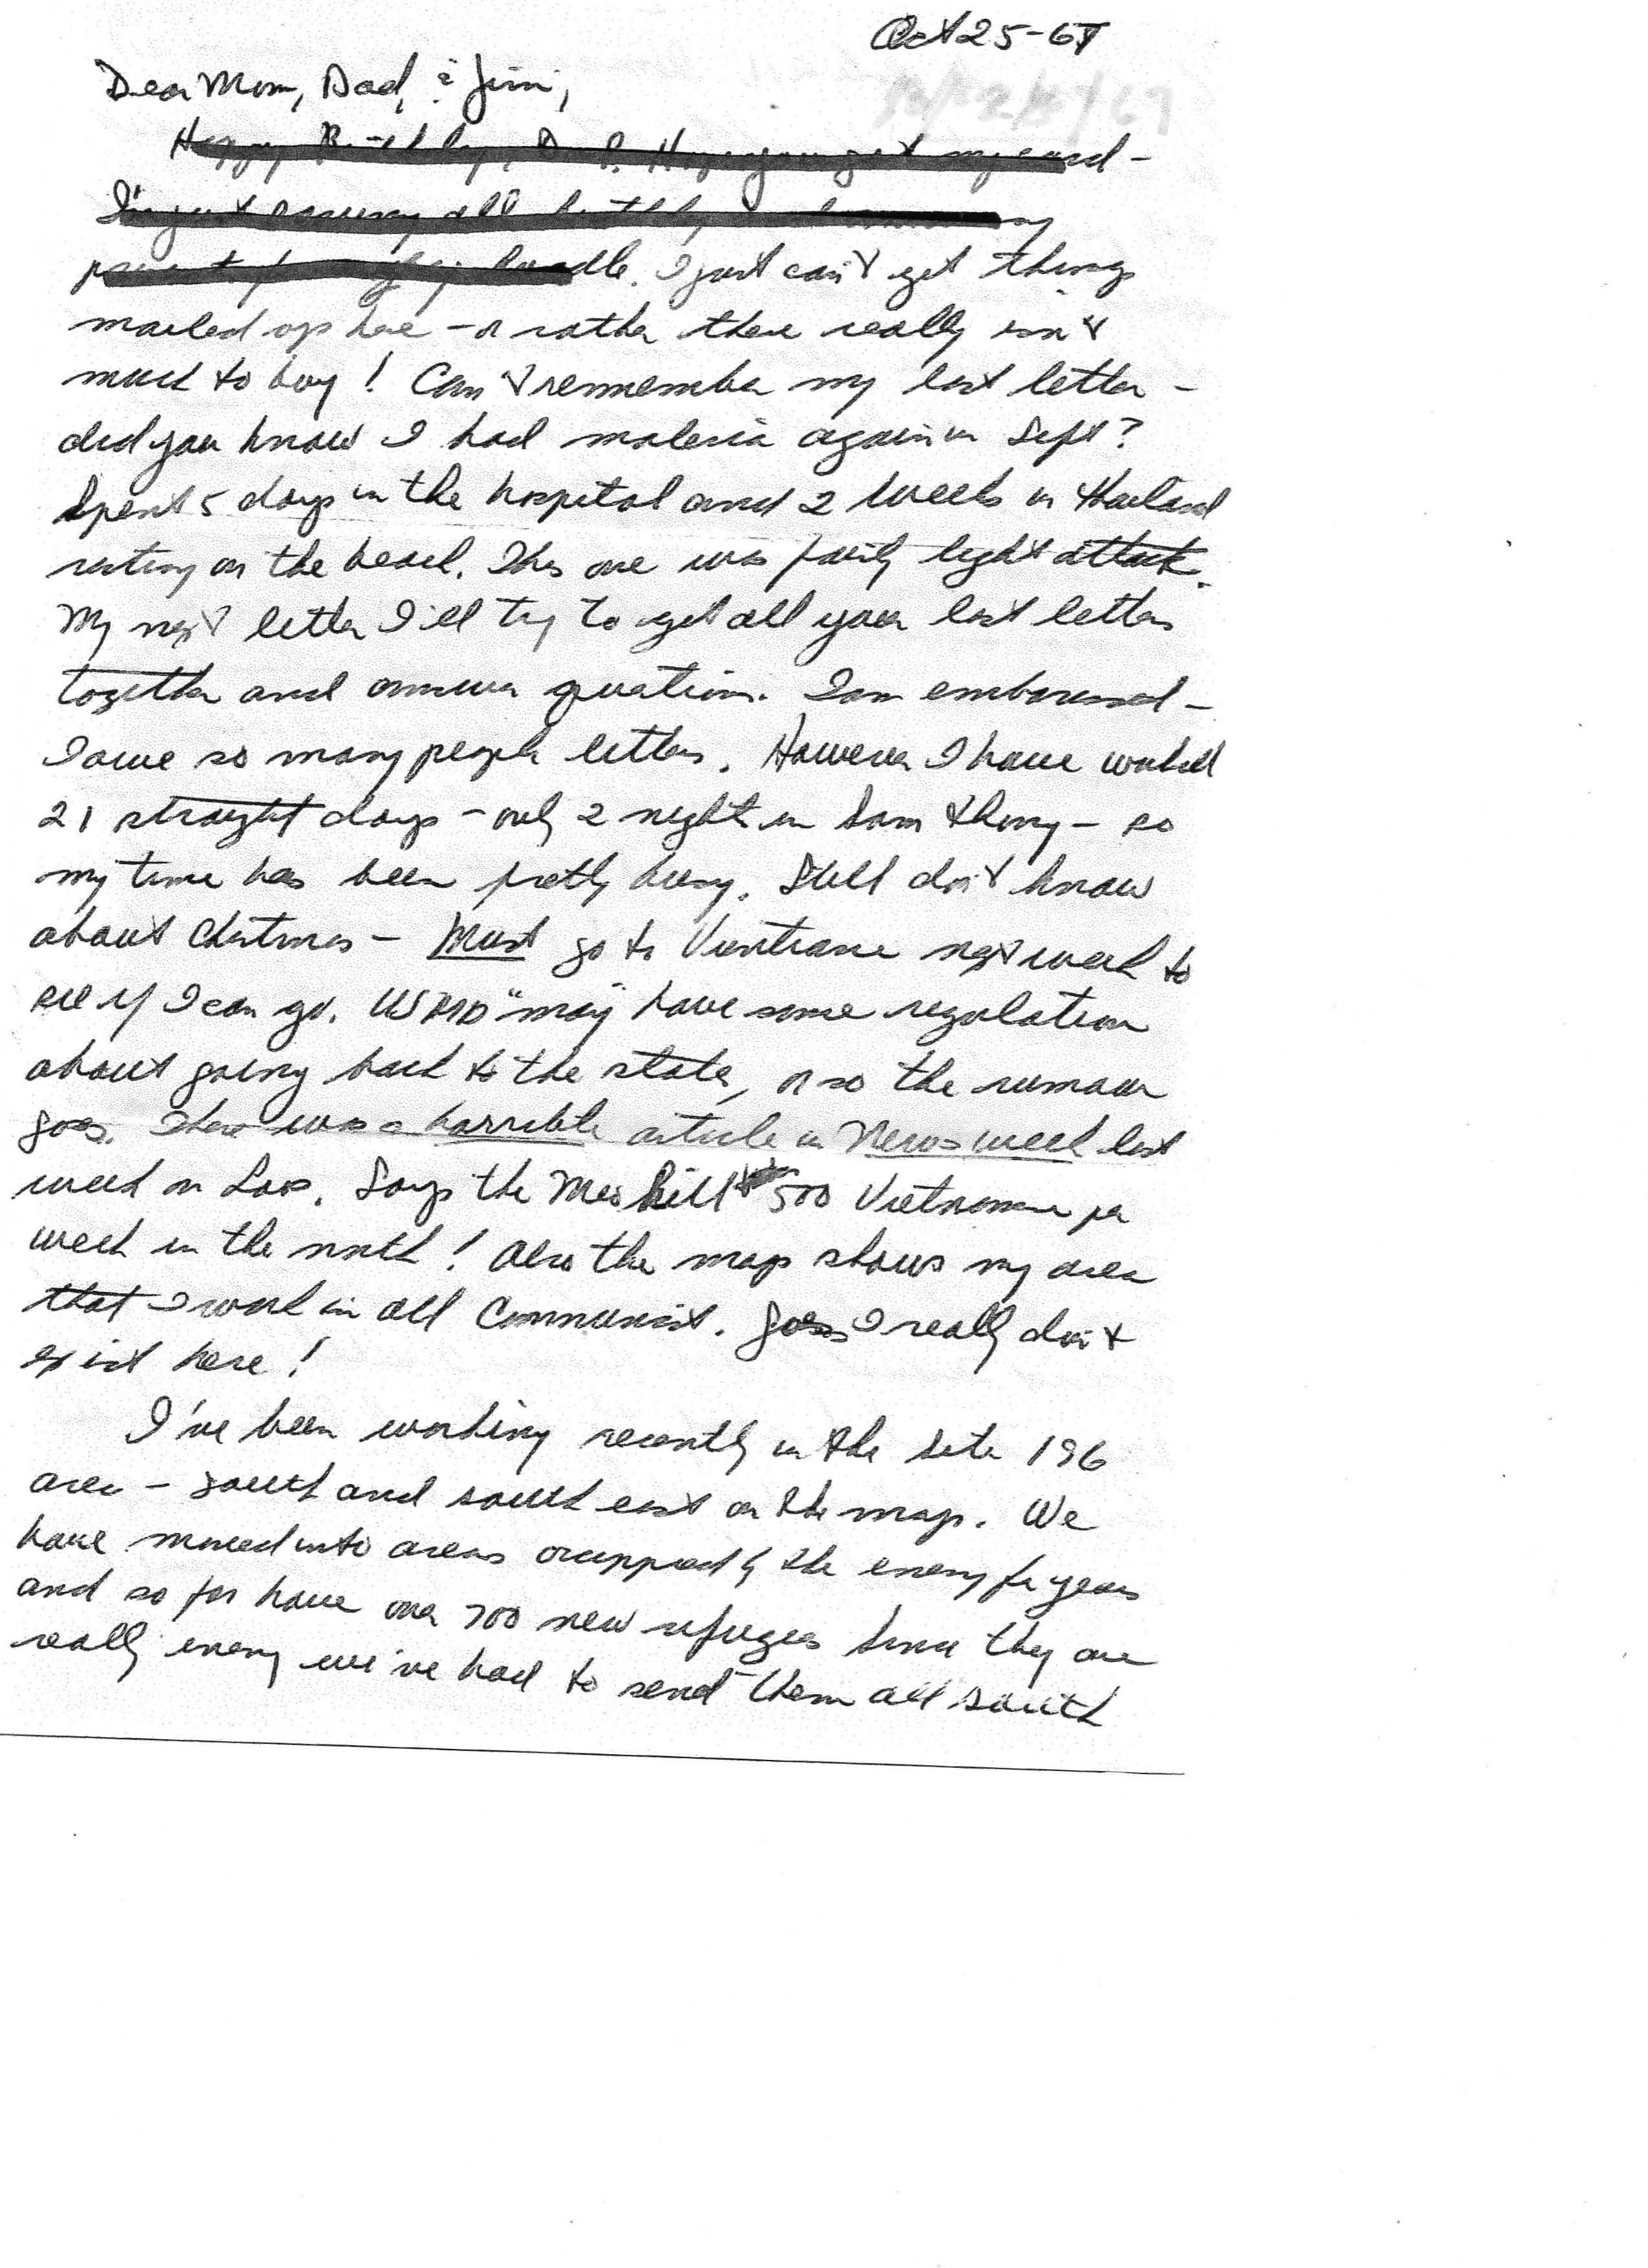 Oct 25-67
Dear Mom, Dad, & Jim,
Happy Birthday, Dad. Hope you get my card -
I'm just saving all birthday
bundle. I just can't get things
mailed up here - or rather there really isn't
much to buy! Can't remember my last letter -
did you know I had maleria again in Sept?
Spent 5 days in the hospital and 2 weeks in Thailand
resting on the beach. This one was fairly light attack.
My next letter I'll try to get all your last letters
together and answer questions. I am embarassed -
I owe so many people letters. However I have worked
21 straight days - only 2 nights in Sam Thong - so
my time has been pretty busy. Still don't know
about Christmas - Must go to Vientiane next week to
see if I can go. USAID "may" have some regulation
about going back to the states, or so the rumour
goes. There was a horrible article in Newsweek last
week on Laos. Says the Meo kill 500 Vietnamese per
week in the north! Also the map shows my area
that I work in all Communist. Guess I really don't
exist here!
I've been working recently in the Site 196
area - south and south east on the map. We
have moved into areas occuppied by the enemy for years
and so far have over 700 new refugees. Since they are
really enemy we've had to send them all south